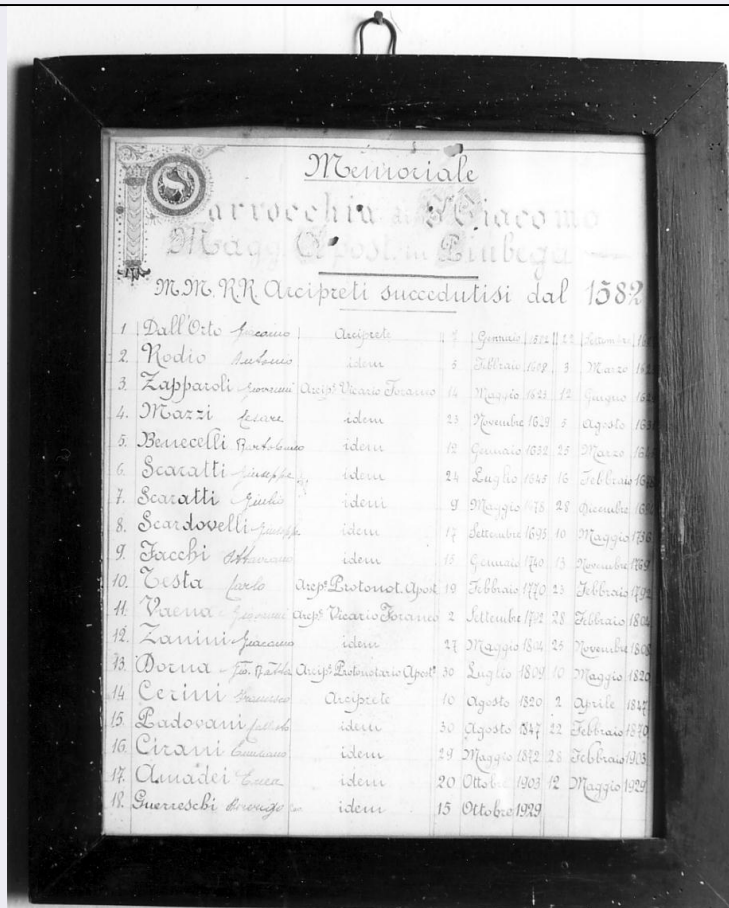 Memoriale
Parrocchia di S. Giacomo
Magg. Apost. in Piubega
M.M. R.R. Arcipreti succedutisi dal 1582
1 Dall'Orto Giacomo Arciprete Gennaio 1582 22
2. Rodio Antonio idem 5 Febbraio 3 Marzo
3. Zapparoli Giovanni Arcipᵉ Vicario Foraneo 14 Maggio 1623 12 Giugno
4. Mazzi Cesare idem 23 Novembre 1629 5 Agosto
5. Benecelli Bartolomeo idem 12 Gennaio 1632 25 Marzo
6. Scaratti Giuseppe idem 24 Luglio 1645 16 Febbraio
7. Scaratti Giulio idem 9 Maggio 28 Dicembre
8. Scardovelli Giuseppe idem 17 Settembre 1695 10 Maggio 1736
9. Facchi Ottaviano idem 15 Gennaio 1740 13 Novembre 1769
10. Testa Carlo Arcipᵉ Protonot. Apost. 19 Febbraio 1770 23 Febbraio 1792
11. Vaena Giovanni Arcipᵉ Vicario Foraneo 2 Settembre 1792 28 Febbraio 1804
12. Zanini Giacomo idem 27 Maggio 1804 25 Novembre 1808
13. Dorna Gio. Batta Arcipᵉ Protonotario Apostᵒ 30 Luglio 1809 10 Maggio 1820
14. Cerini Francesco Arciprete 10 Agosto 1820 2 Aprile 1847
15. Padovani idem 30 Agosto 1847 22 Febbraio 1870
16. Cirani idem 29 Maggio 1872 28 Febbraio 1903
17. Amadei Enea idem 20 Ottobre 1903 12 Maggio 1929
18. Guerreschi idem 15 Ottobre 1929